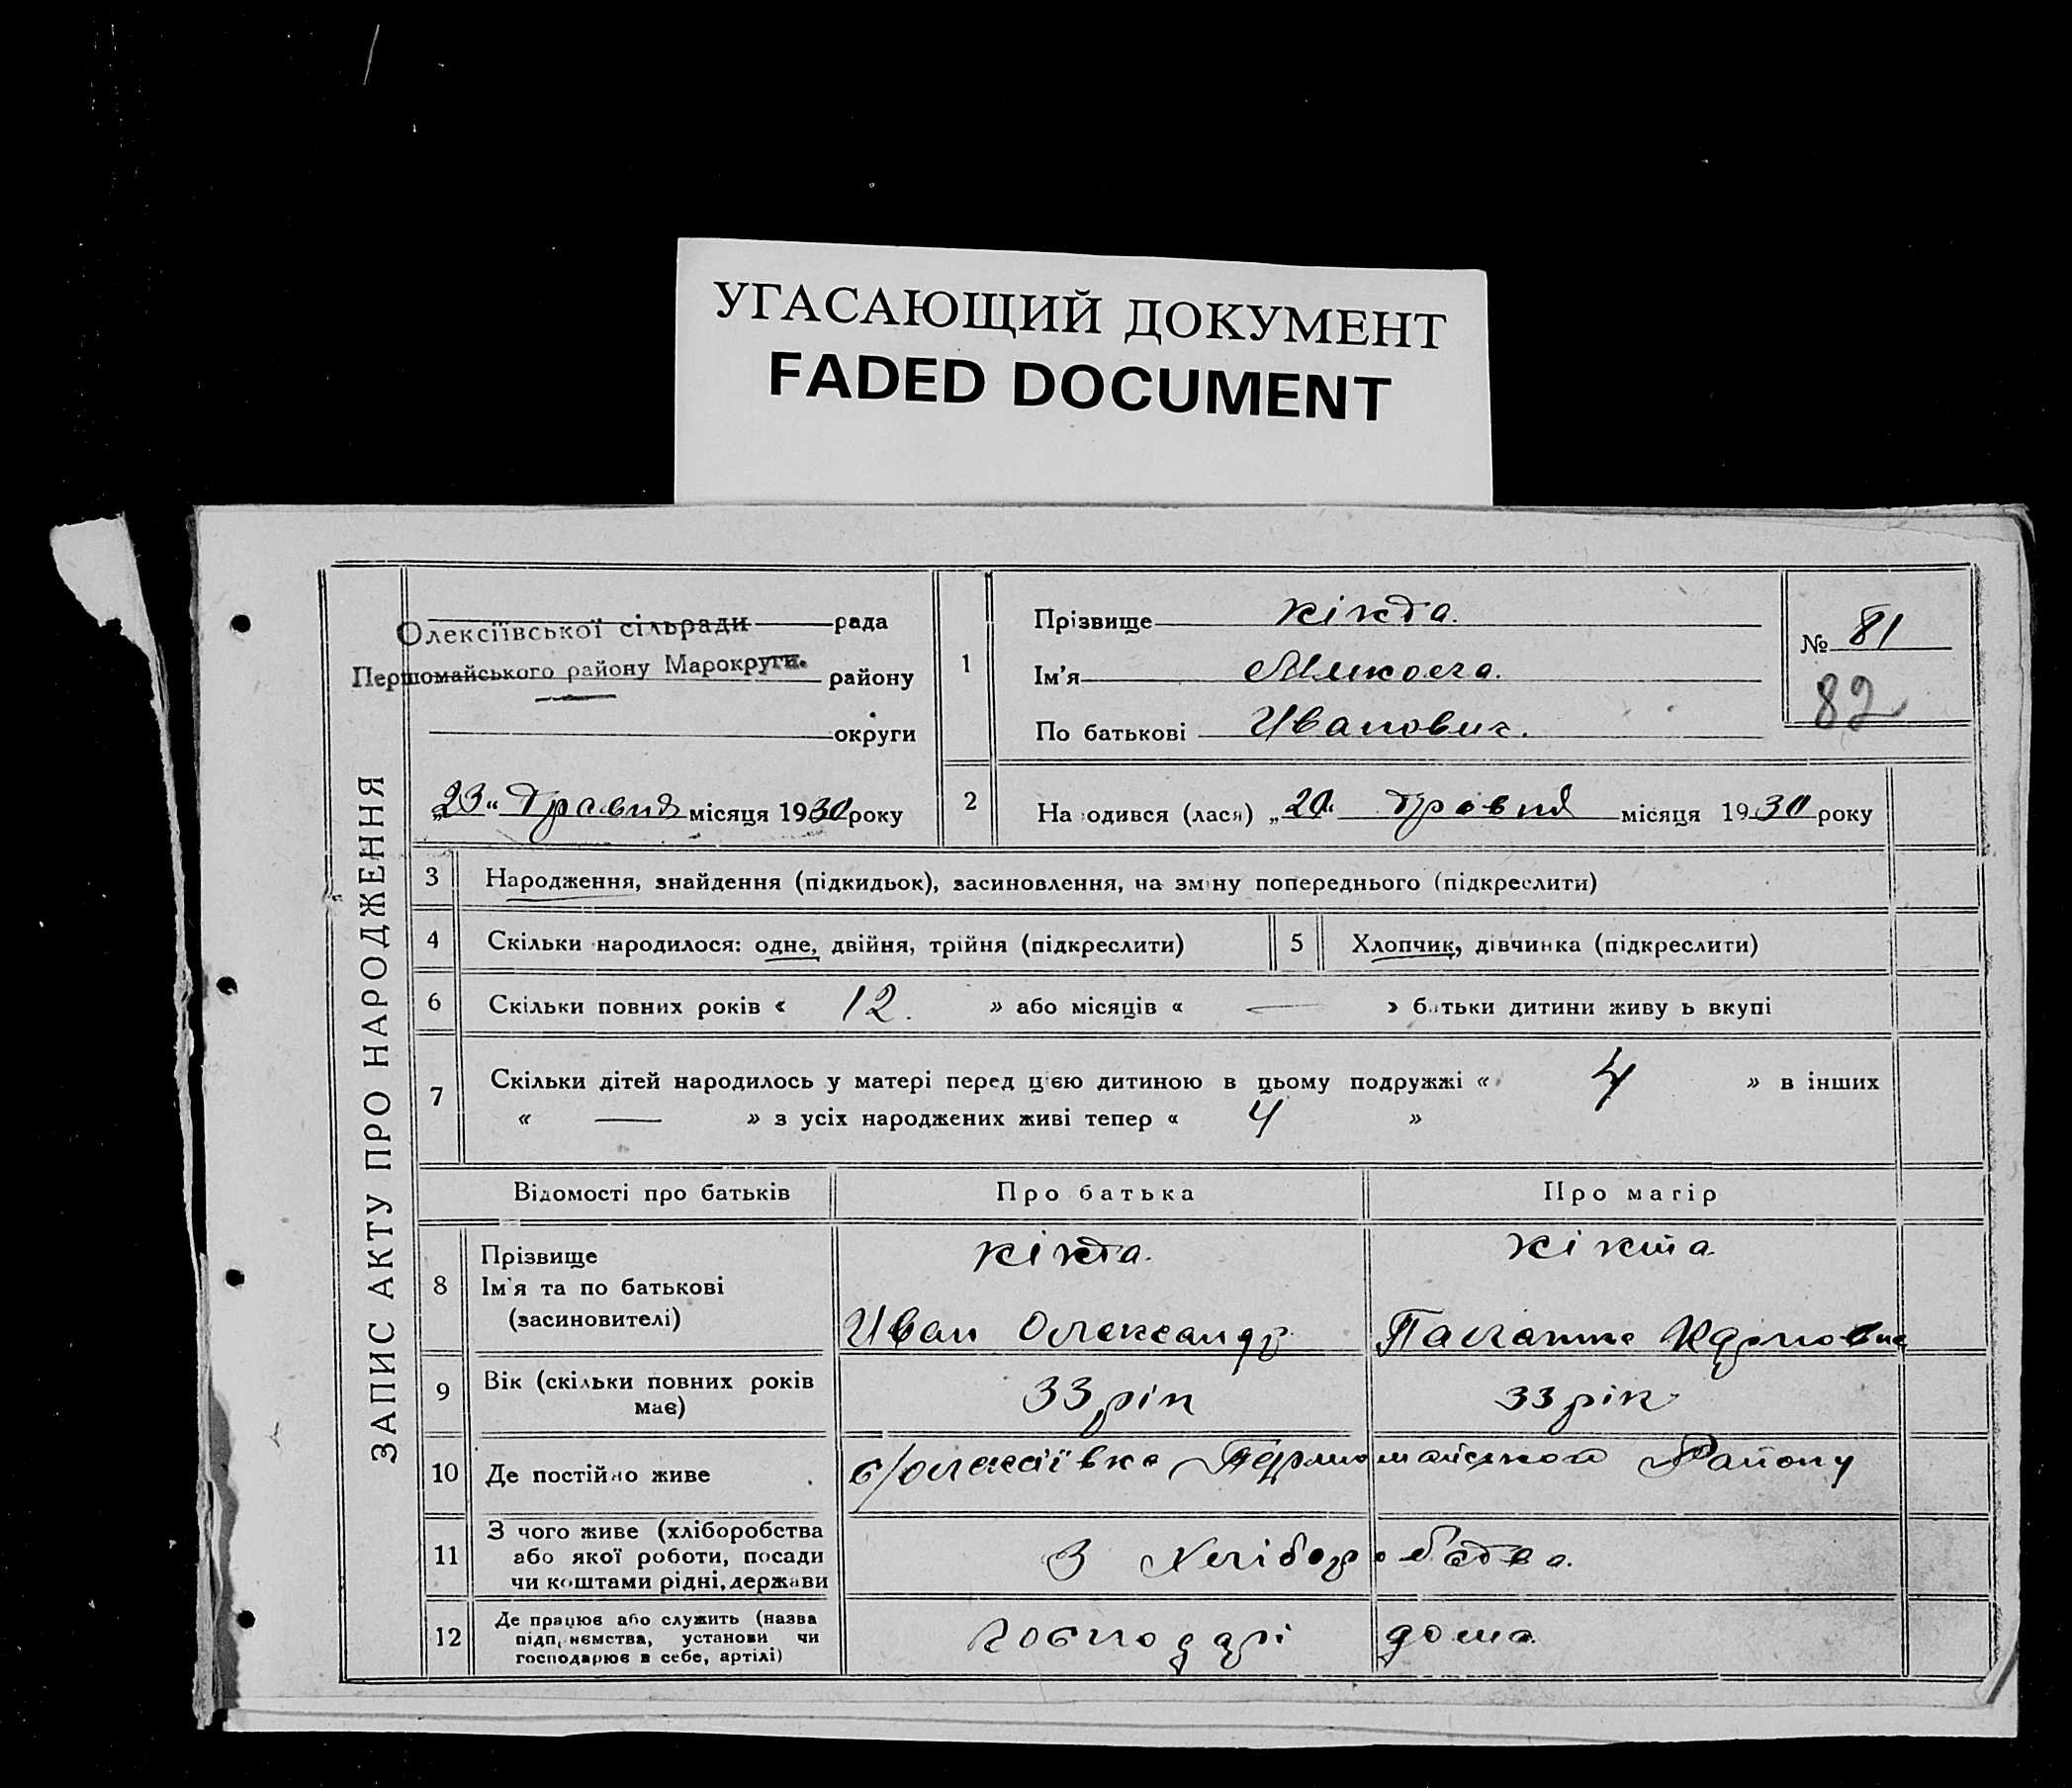 УГАСАЮЩИЙ ДОКУМЕНТ
FADED DOCUMENT
ЗАПИС АКТУ ПРО НАРОДЖЕННЯ
Олексіївської сільради рада
Першомайського району Марокруги. району
округи
„23“ Травня місяця 1930 року
1
Прізвище Кікта.
Ім'я Микола.
По батькові Иванович.
№ 81
82
2 На одився (лася) „20“ травня місяця 1930 року
3 Народження, знайдення (підкидьок), засиновлення, на зміну попереднього (підкреслити)
4 Скільки народилося: одне, двійня, трійня (підкреслити) 5 Хлопчик, дівчинка (підкреслити)
6 Скільки повних років « 12. » або місяців « — » батьки дитини живу ь вкупі
7 Скільки дітей народилось у матері перед цією дитиною в цьому подружжі « 4 » в інших
« — » з усіх народжених живі тепер « 4 »
Відомості про батьків Про батька Про матір
8 Прізвище Кікта. Кікта
Ім'я та по батькові
(засиновителі) Иван Олександр
9 Вік (скільки повних років 33 рік 33 рік
має)
10 Де постійно живе с/Олексіївка Першомайськой Району
11 З чого живе (хліборобства
або якої роботи, посади З Хліборобства.
чи коштами рідні, держави
12 Де працює або служить (назва
підп, нємства, установи чи господарі дома
господарює в себе, артілі)